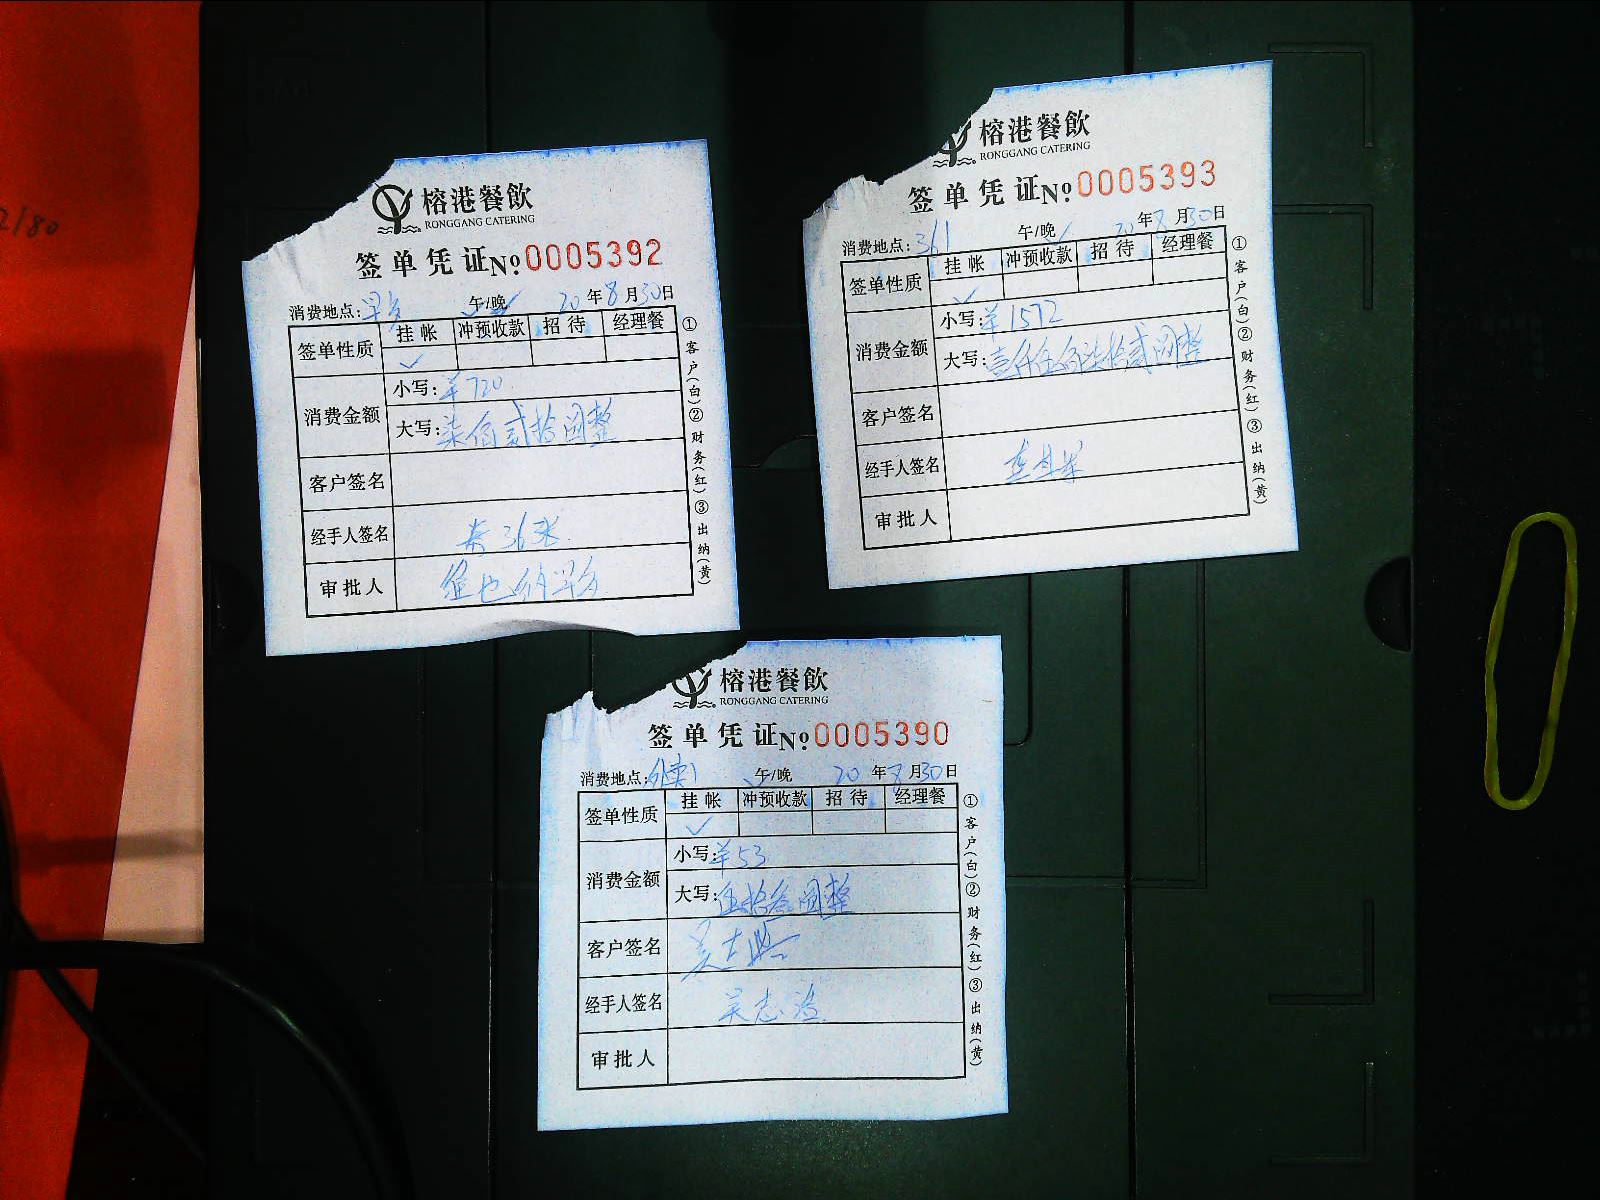 榕港餐飲
RONGGANG CATERING
签单凭证No.0005392
消费地点: 午/晚 20年8月30日
签单性质 挂帐 冲预收款 招待 经理餐
消费金额
小写:¥720
大写:柒佰贰拾圆整
客户签名
经手人签名
审批人 维也纳早餐
①客户(白)②财务(红)③出纳(黄)
榕港餐飲
RONGGANG CATERING
签单凭证No.0005393
消费地点:361 午/晚 20年8月30日
签单性质 挂帐 冲预收款 招待 经理餐
消费金额
小写:¥1572
大写:壹仟伍佰柒拾贰圆整
客户签名
经手人签名
审批人
①客户(白)②财务(红)③出纳(黄)
榕港餐飲
RONGGANG CATERING
签单凭证No.0005390
消费地点:外卖1 午/晚 20年8月30日
签单性质 挂帐 冲预收款 招待 经理餐
消费金额
小写:¥53
大写:伍拾叁圆整
客户签名
经手人签名 吴志
审批人
①客户(白)②财务(红)③出纳(黄)